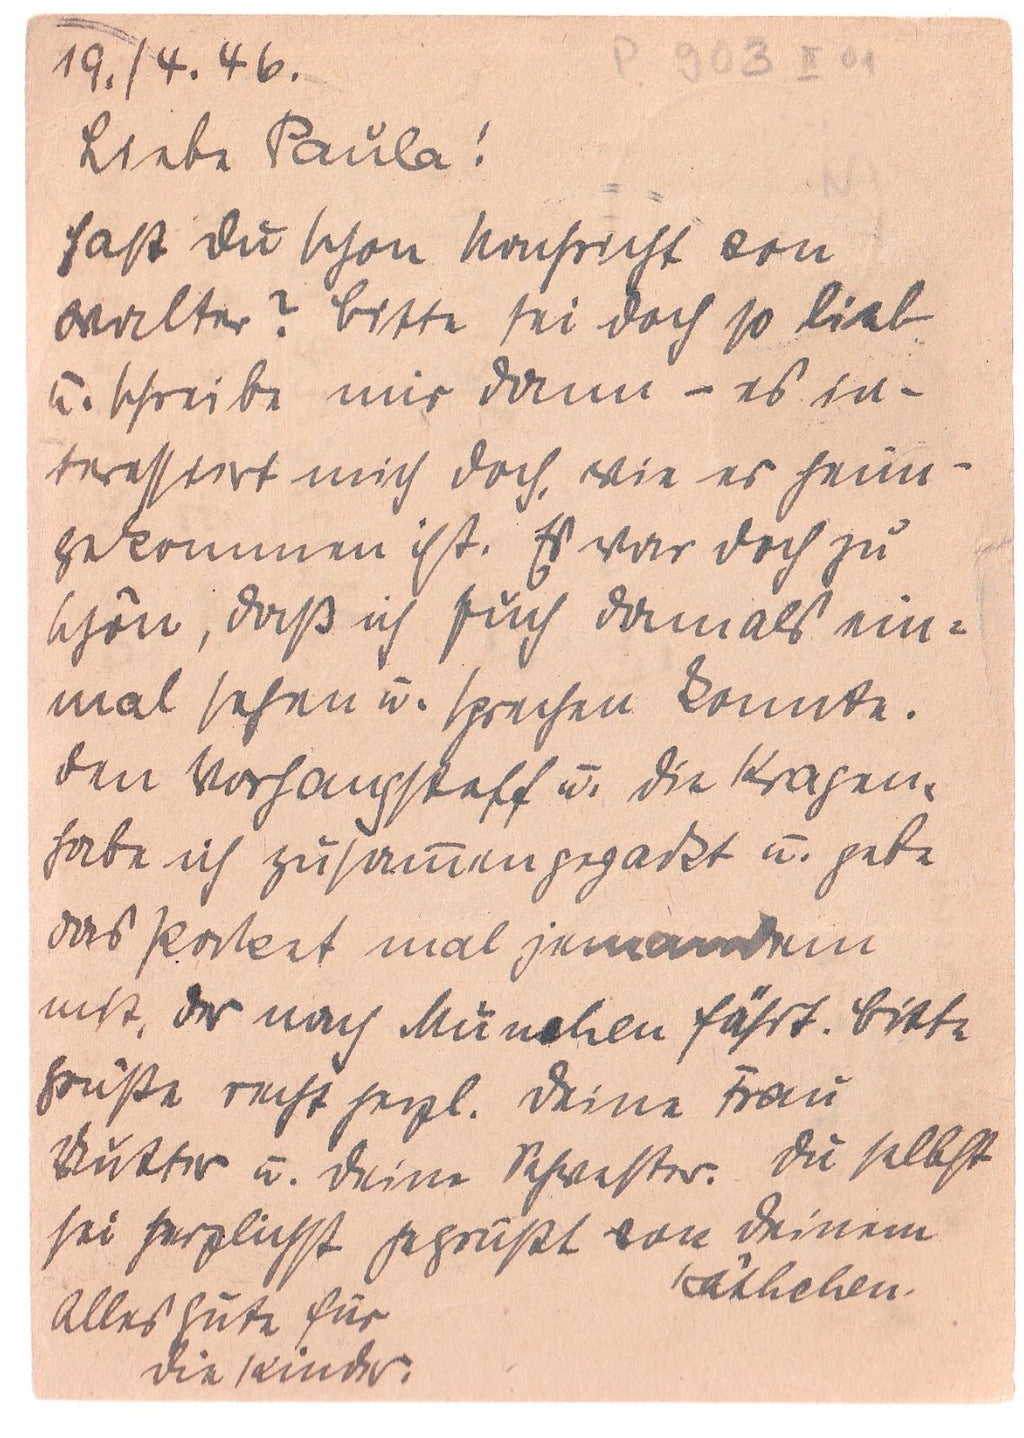 19./4.46.
P 903 II 01
Liebe Paula!
hast Du schon Nachricht von
Walter? Bitte sei doch so lieb
u. schreibe mir dann – es in-
teressiert mich doch, wie er heim-
gekommen ist. Es war doch zu
schön, daß ich Euch damals ein-
mal sehen u. sprechen konnte.
Den Vorhangstoff u. die Kragen
habe ich zusam̅engepackt u. gebe
das Packet mal jemandem
mit, der nach München fährt. Bitte
grüße recht herzl. Deine Frau
Mutter u. Deine Schwester. Du selbst
sei herzlichst gegrüßt von Deinem
Käthchen.
Alles Gute für
die Kinder.